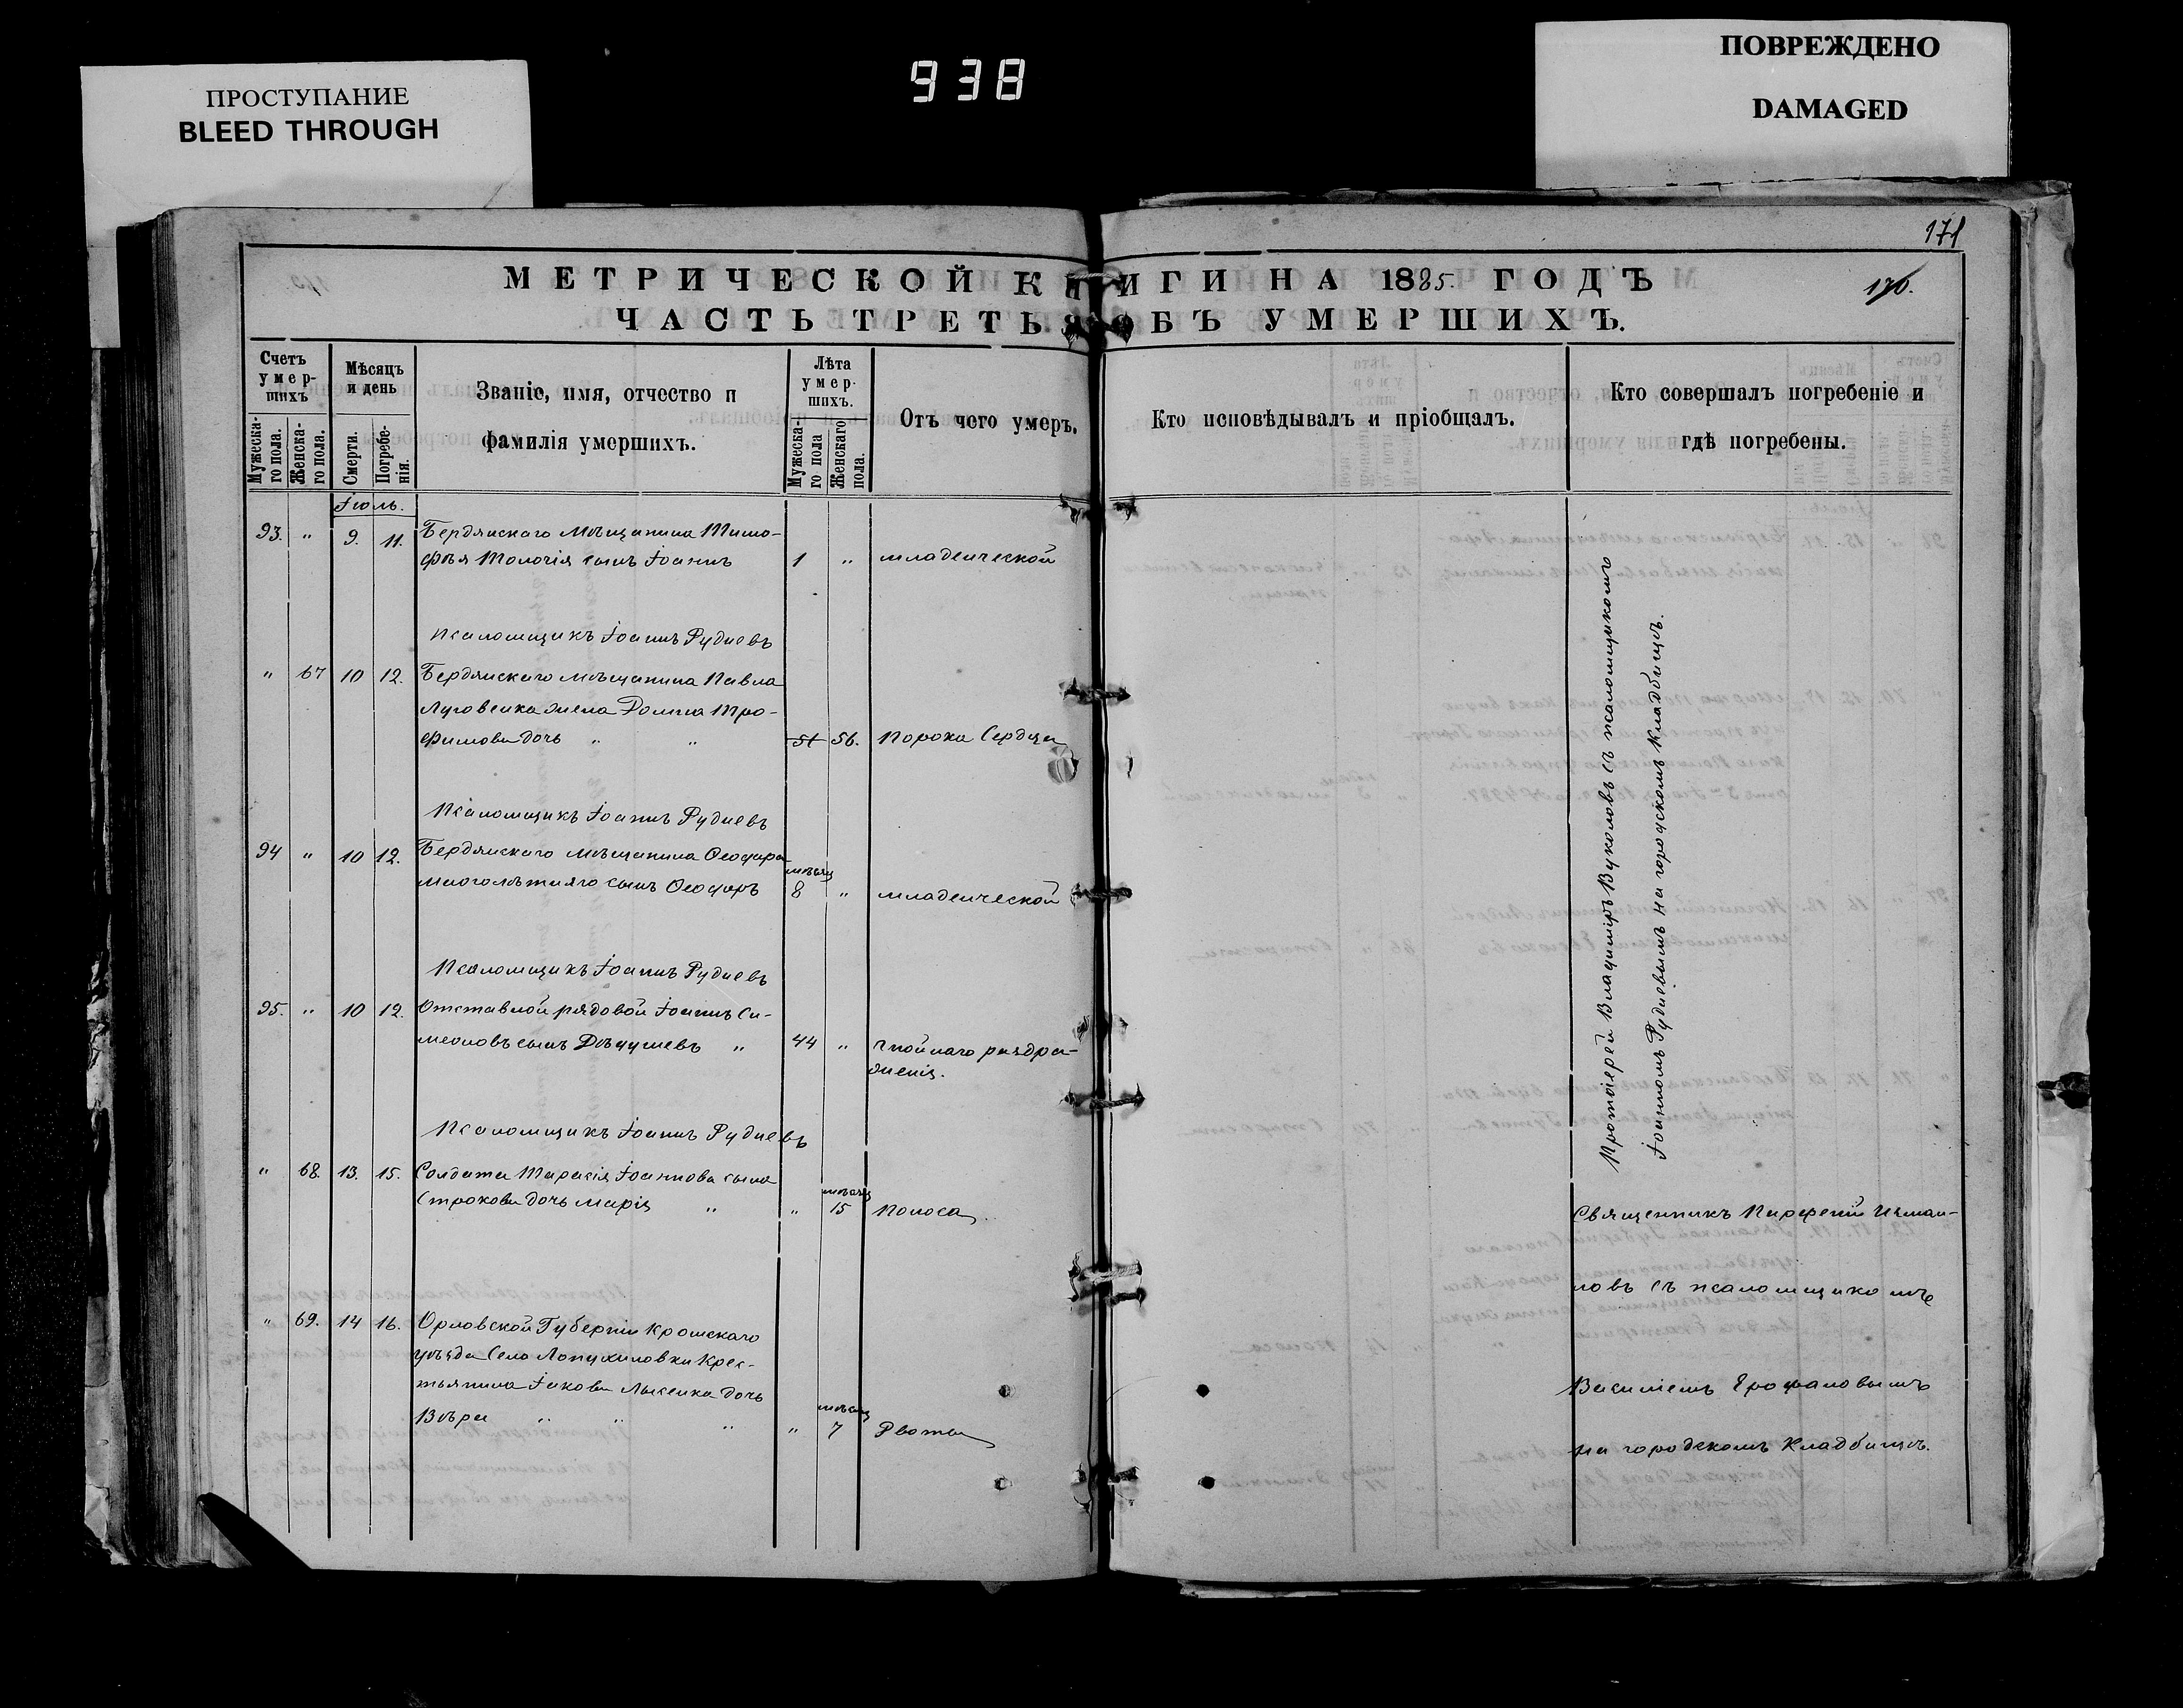 ПРОСТУПАНИЕ
BLEED THROUGH
938
ПОВРЕЖДЕНО
DAMAGED
171
МЕТРИЧЕСКОЙ КНИГИ НА 1885. ГОДЪ
176.
ЧАСТЬ ТРЕТЬЯ ОБЪ УМЕРШИХЪ.
Счетъ умершихъ
Мужескаго пола.
Женскаго пола.
Мѣсяцъ и день
Смерти.
Погребенія.
Званіе, имя, отчество и
фамилія умершихъ.
Лѣта умершихъ.
Мужескаго пола
Женскаго пола.
Отъ чего умеръ.
Кто исповѣдывалъ и пріобщалъ.
Кто совершалъ погребеніе и
гдѣ погребены.
Іюль.
93. " 9. 11. Бердянскаго Мѣщанина Тимо-
фѣя Толочія сынъ Іоаннъ 1 " младенческой
Псаломщикъ Іоаннъ Рудневъ
" 67 10 12. Бердянскаго Мѣщанина Павла
Луговенка жена Домна Тро-
фимова дочь " " 51 56. Порока Сердца
Псаломщикъ Іоаннъ Рудневъ
94 " 10 12. Бердянскаго мѣщанина Ѳеодора
Многолѣтняго сынъ Ѳеодоръ мѣсяц 8 " младенческой
Псаломщикъ Іоаннъ Рудневъ
95. " 10 12. Отставной рядовой Іоаннъ Си-
меоновъ сынъ Дѣдушевъ " 44 " гнойнаго раздра-
женія.
Псаломщикъ Іоаннъ Рудневъ
" 68. 13. 15. Солдата Тарасія Іоаннова сына
Строкова дочь Марія " " мѣсяц 15 Поноса
" 69. 14 16. Орловской Губерніи Кромскаго
уѣзда Села Лопухиновки Крес-
тьянина Іакова Лысенка дочь
Вѣра " " " " мѣсяц 7 Рвота
Протоіерей Владиміръ Вуколовъ съ псаломщикомъ
Іоанномъ Рудневымъ на городскомъ Кладбищѣ.
Священникъ Парфеній
новъ съ псаломщикомъ
Василіемъ
на городскомъ Кладбищѣ.